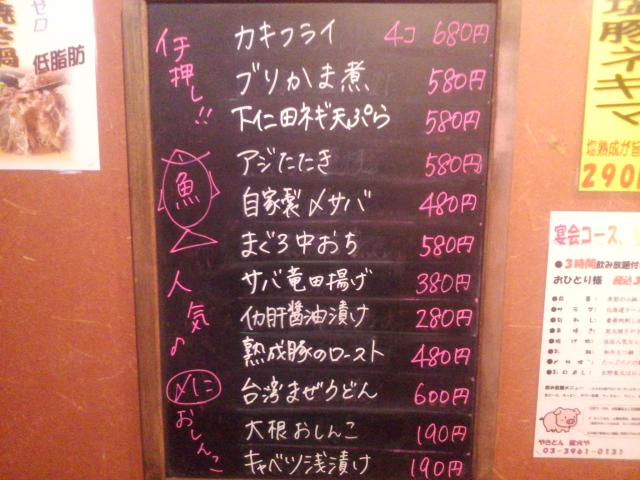 イチ押し!!
カキフライ 4コ 680円
ブリかま煮 580円
下仁田ネギ天ぷら 580円
魚
アジたたき 580円
自家製〆サバ 480円
まぐろ中おち 580円
人気♪
サバ竜田揚げ 380円
イカ肝醤油漬け 280円
熟成豚のロースト 480円
〆に
台湾まぜうどん 600円
おしんこ
大根おしんこ 190円
キャベツ浅漬け 190円
ゼロ
低脂肪
塩豚ネギマ
塩熟成が旨
290
宴会コース
●3時間飲み放題付
おひとり様 税込
飲み放題メニュー
やきとん
03-3961-0131